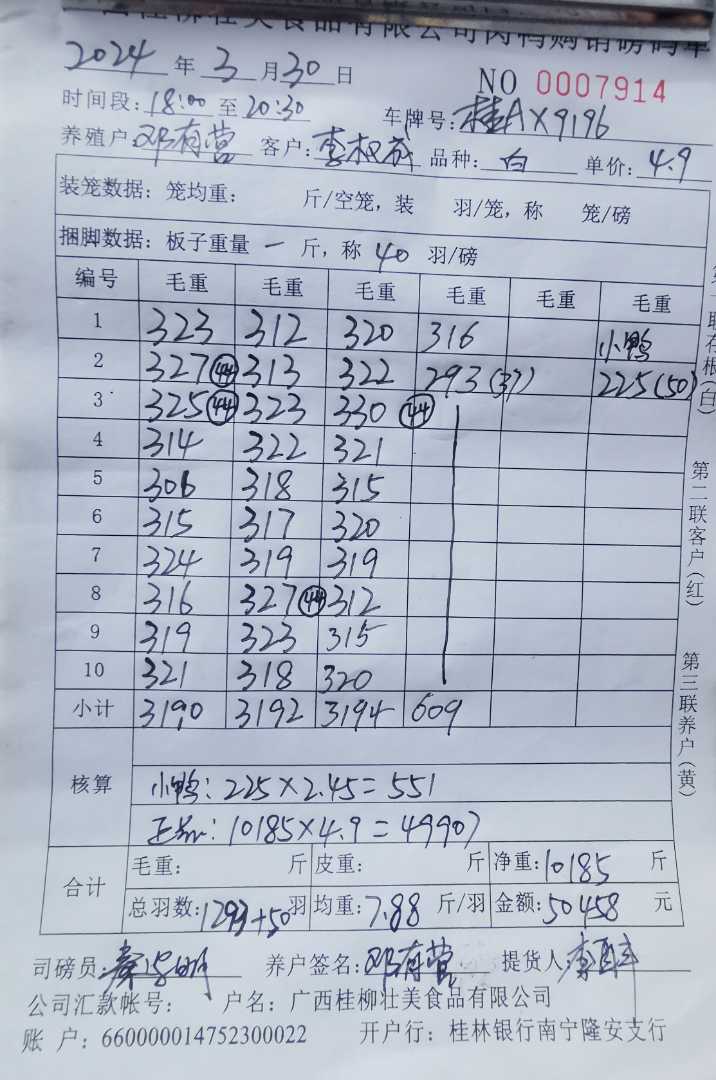 桂柳壮美食品有限公司肉鸭购销磅码单
2024 年 3 月 30 日 NO 0007914
时间段: 18:00 至 20:30 车牌号: 桂AX9196
养殖户: 邓有营 客户: 李权成 品种: 白 单价: 4.9
装笼数据: 笼均重: 斤/空笼, 装 羽/笼, 称 笼/磅
捆脚数据: 板子重量 一 斤, 称 40 羽/磅
编号 毛重 毛重 毛重 毛重 毛重 毛重
1 323 312 320 316 小鸭
2 327 (44) 313 322 293 (37) 225 (50)
3 325 (44) 323 330 (44)
4 314 322 321
5 306 318 315
6 315 317 320
7 324 319 319
8 316 327 (44) 312
9 319 323 315
10 321 318 320
小计 3190 3192 3194 609
核算
小鸭: 225×2.45=551
10185×4.9=49907
合计 毛重: 斤 皮重: 斤 净重: 10185 斤
总羽数: 1293+50 羽 均重: 7.88 斤/羽 金额: 50458 元
司磅员: 养户签名: 邓有营 提货人:
公司汇款帐号: 户名: 广西桂柳壮美食品有限公司
账 户: 660000014752300022 开户行: 桂林银行南宁隆安支行
第一联存根(白)
第二联客户(红)
第三联养户(黄)